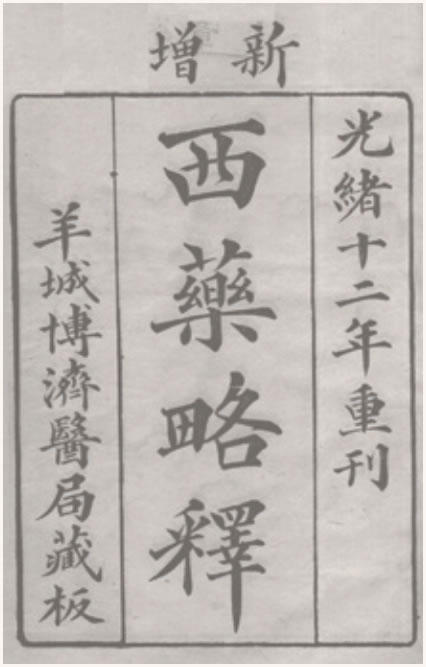 新增
光緒十二年重刊
西藥略釋
羊城博濟醫局藏板